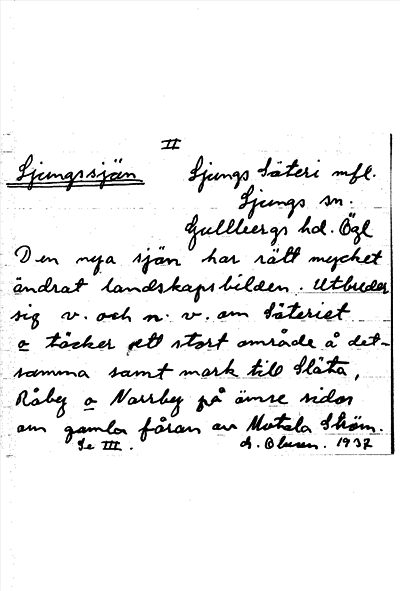 II
Ljungssjön Ljungs Säteri mfl.
Ljungs sn.
Gullbergs hd. Ögl
Den nya sjön har rätt mycket
ändrat landskapsbilden. Utbreder
sig v. och n. v. om Säteriet
o täcker ett stort område å det-
samma samt mark till Släta,
Råby o Norrby på ömse sidor
om gamla fåran av Motala Ström.
Se III. Olsson. 1937